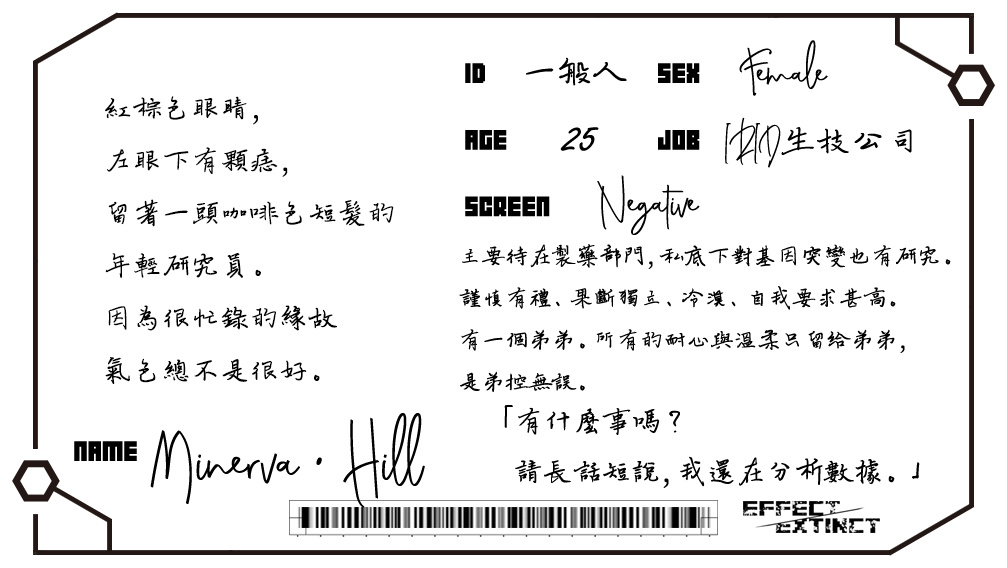 紅棕色眼睛,
左眼下有顆痣,
留著一頭咖啡色短髮的
年輕研究員。
因為很忙錄的緣故
氣色總不是很好。
NAME Minerva · Hill
ID 一般人 SEX Female
AGE 25 JOB 生技公司
SCREEN Negative
主要待在製藥部門,私底下對基因突變也有研究。
謹慎有禮、果斷獨立、冷漠、自我要求甚高。
有一個弟弟。所有的耐心與溫柔只留給弟弟,
是弟控無誤。
「有什麼事嗎?
請長話短說,我還在分析數據。」
EFFECT
EXTINCT